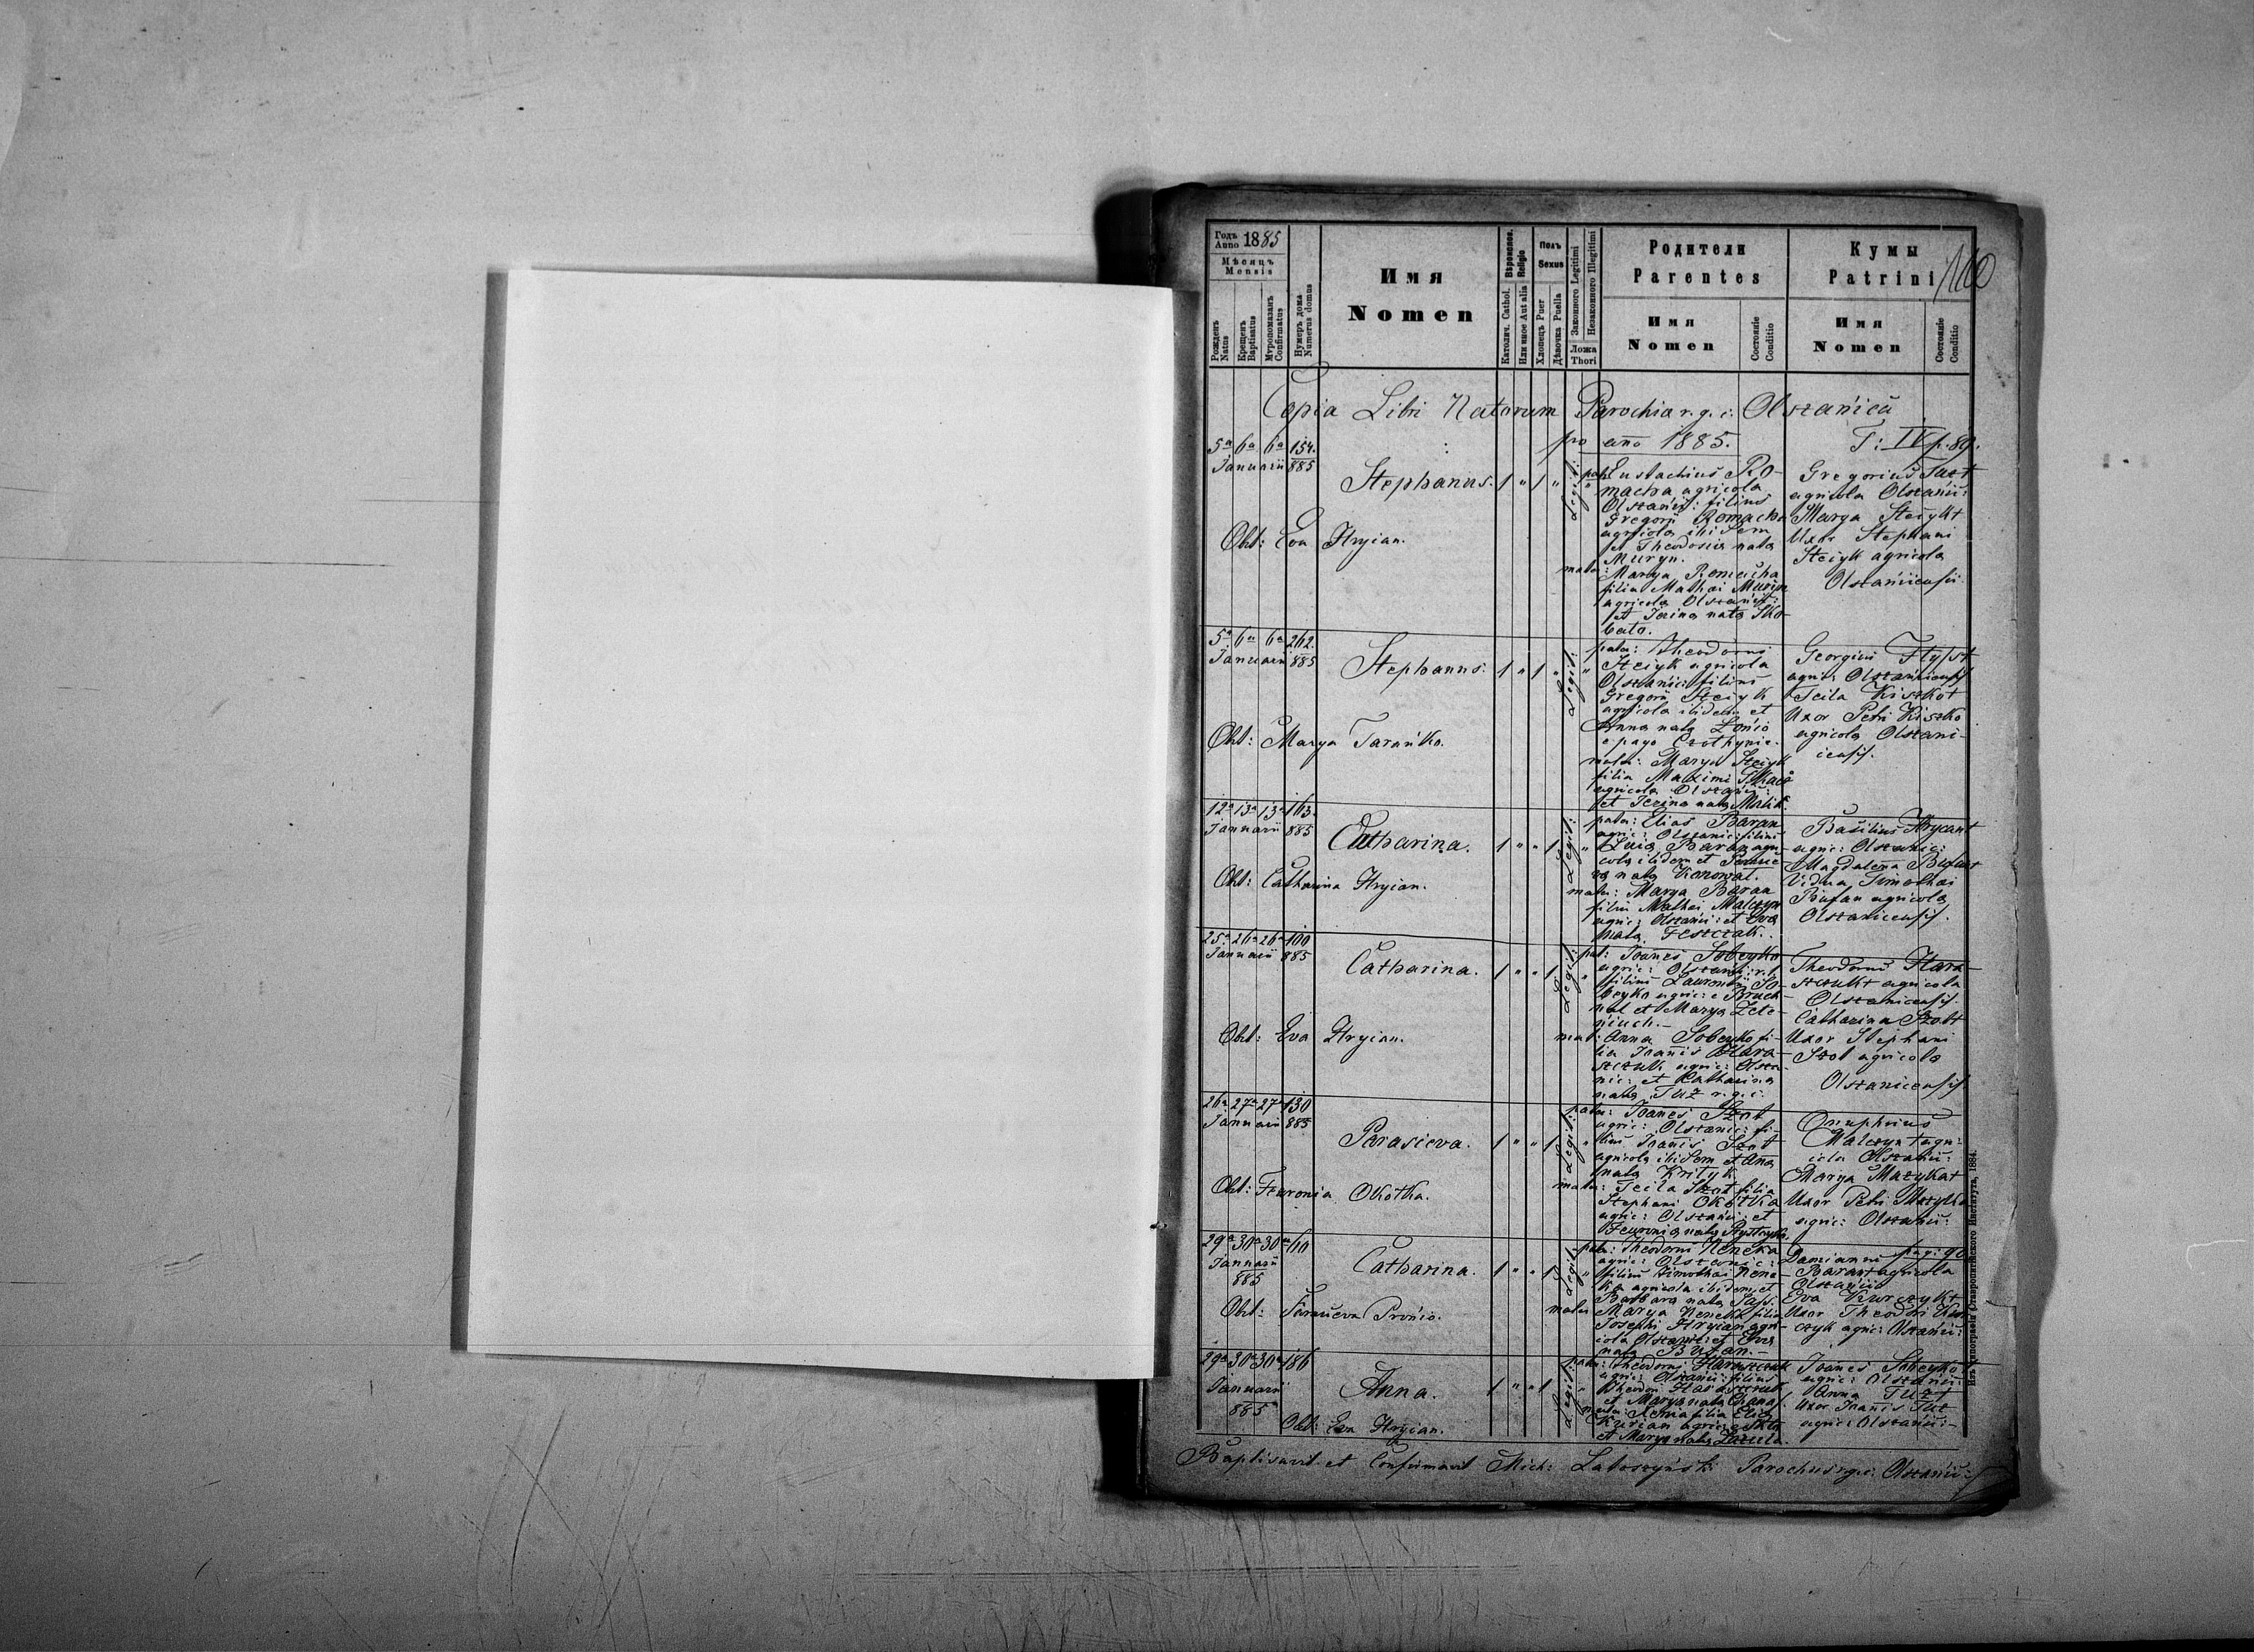 Годъ Anno 1885
Мѣсяцъ
Mensis
Рожденъ Natus
Крещенъ Baptisatus
Мѵропомазанъ Confirmatus
Нумеръ дома Numerus domus
Имя
Nomen
Вѣроисповѣд. Religio
Католич. Cathol.
Или иное Aut alia
Полъ
Sexus
Хлопецъ Puer
Дѣвочка Puella
Законного Legitimi
Незаконного Illegitimi
Ложа
Thori
Родители
Parentes
Имя
Nomen
Состояніе
Conditio
Кумы
Patrini
Имя
Nomen
Состояніе
Conditio
Copia Libri Natorum Parochia r. g. c. Olszanica
pro anno 1885. T: IV p. 89.
5a 6a 6a 154.
Januarii 885
Stephanus. 1 " 1 " Legit: "
Obst: Eva Hryian.
pater: Eustachius Ro-
macha agricola
Olszanic: filius
Gregorii Romacha
agricola ibidem
et Theodosia nata
Muryn.
mater:
Marya Romacha
filia Mathei Muryn
agricola Olszanic:
et Irina nata Sko-
bato.
Gregorius Tuz +
agricola Olszanic:
Marya Steiyk +
Uxor Stephani
Steiyk agricola
Olszanicensis
5a 6a 6a 262.
Januarii 885
Stephanus. 1 " 1 " Legit: "
Obst: Marya Tarańko.
pater: Theodorus
Steiyk agricola
Olszanic: filius
Gregorii Steiyk
agricola ibidem et
Anna nata Łońio
e pago
mater: Marya Steiyk
filia Maximi
agricola Olszanic:
et Irina nata Malik.
Georgius
agric: Olszanicensis
Teila Kiszko +
Uxor Petri Kiszko
agricola Olszani-
icensis.
12a 13a 13a 163.
Januarii 885
Catharina. 1 " " 1 Legit: "
Obst: Catharina Hryian.
pater: Elias Baran
agric: Olszanic: filius
Baran agri-
cola ibidem et
nata Konowal.
mater: Marya Baran
filia Mathei Malczyn
agric: Olszanic: et Eva
nata Feszczak.
Basilius Hrycan +
agric: Olszanic:
Magdalena Bufan +
Vidua Timothei
Bufan agricola
Olszanicensis.
25a 26a 26a 100
Januarii 885
Catharina. 1 " " 1 Legit: "
Obst: Eva Hryian.
pat: Joanes Sobeyko
agric: Olszanic: r. l.
filius Laurentii So-
beyko agric: e Bruch-
nal et Marya Zele-
niuch.-
mat: Anna Sobeyko fi-
lia Joannis Hara-
szczuk agric: Olsza-
nic: et Catharina
nata Tuz r. g. c.
Theodorus Hara-
szczuk + agricola
Olszanicensis.
Catharina Szot +
Uxor Stephani
Szot agricola
Olszanicensis.
26a 27a 27a 130
Januarii 885
Parasceva. 1 " " 1 Legit: "
Obst: Fewronia Okotka.
pater: Joanes Szot
agric: Olszanic: fi-
lius Joannis Szot
agricola ibidem et Anna
nata Krityk
mater: Teila Szot filia
Stephani Okotka
agric: Olszanic: et
Fewronia nata
Onuphrius
Malczyn + agri-
cola Olszanic:
Marya Mazyka +
Uxor Petri Mazyka
agric: Olszanic:
29a 30a 30a 60
Januarii
885
Catharina. 1 " " 1 Legit: "
Obst: Parasceva Prońio.
pater: Theodorus Neneka
agric: Olszanic:
filius Timothei Nene-
ka agricola ibidem et
Barbara nata Sass.
mater Marya Neneka filia
Josephi Hryian agri-
cola Olszanic: et Eva
nata Bufan.-
pag: 90
Damianus
Baran + agricola
Olszanic:
Eva Kurczyk +
Uxor Theodori Kur-
czyk agric: Olszanic:
29a 30a 30a 186
Januarii
885
Anna. 1 " " 1 Legit: "
Obst: Eva Hryian.
pater: Theodorus Haraszczuk
agric: Olszanic: filius
Theodori Haraszczuk
et Marya nata
mater: Xenia filia Elia
Kurian agric:
et Marya nata Zazula.
Joanes Sobeyko
agric: Olszanic:
Anna Tuz +
Uxor Joannis Tuz
agric: Olszanic:-
Baptisavit et Confirmavit Mich: Latoszyński Parochus r. g. c. Olszanic:
Изъ типографіи Ставропигійского Института, 1884.